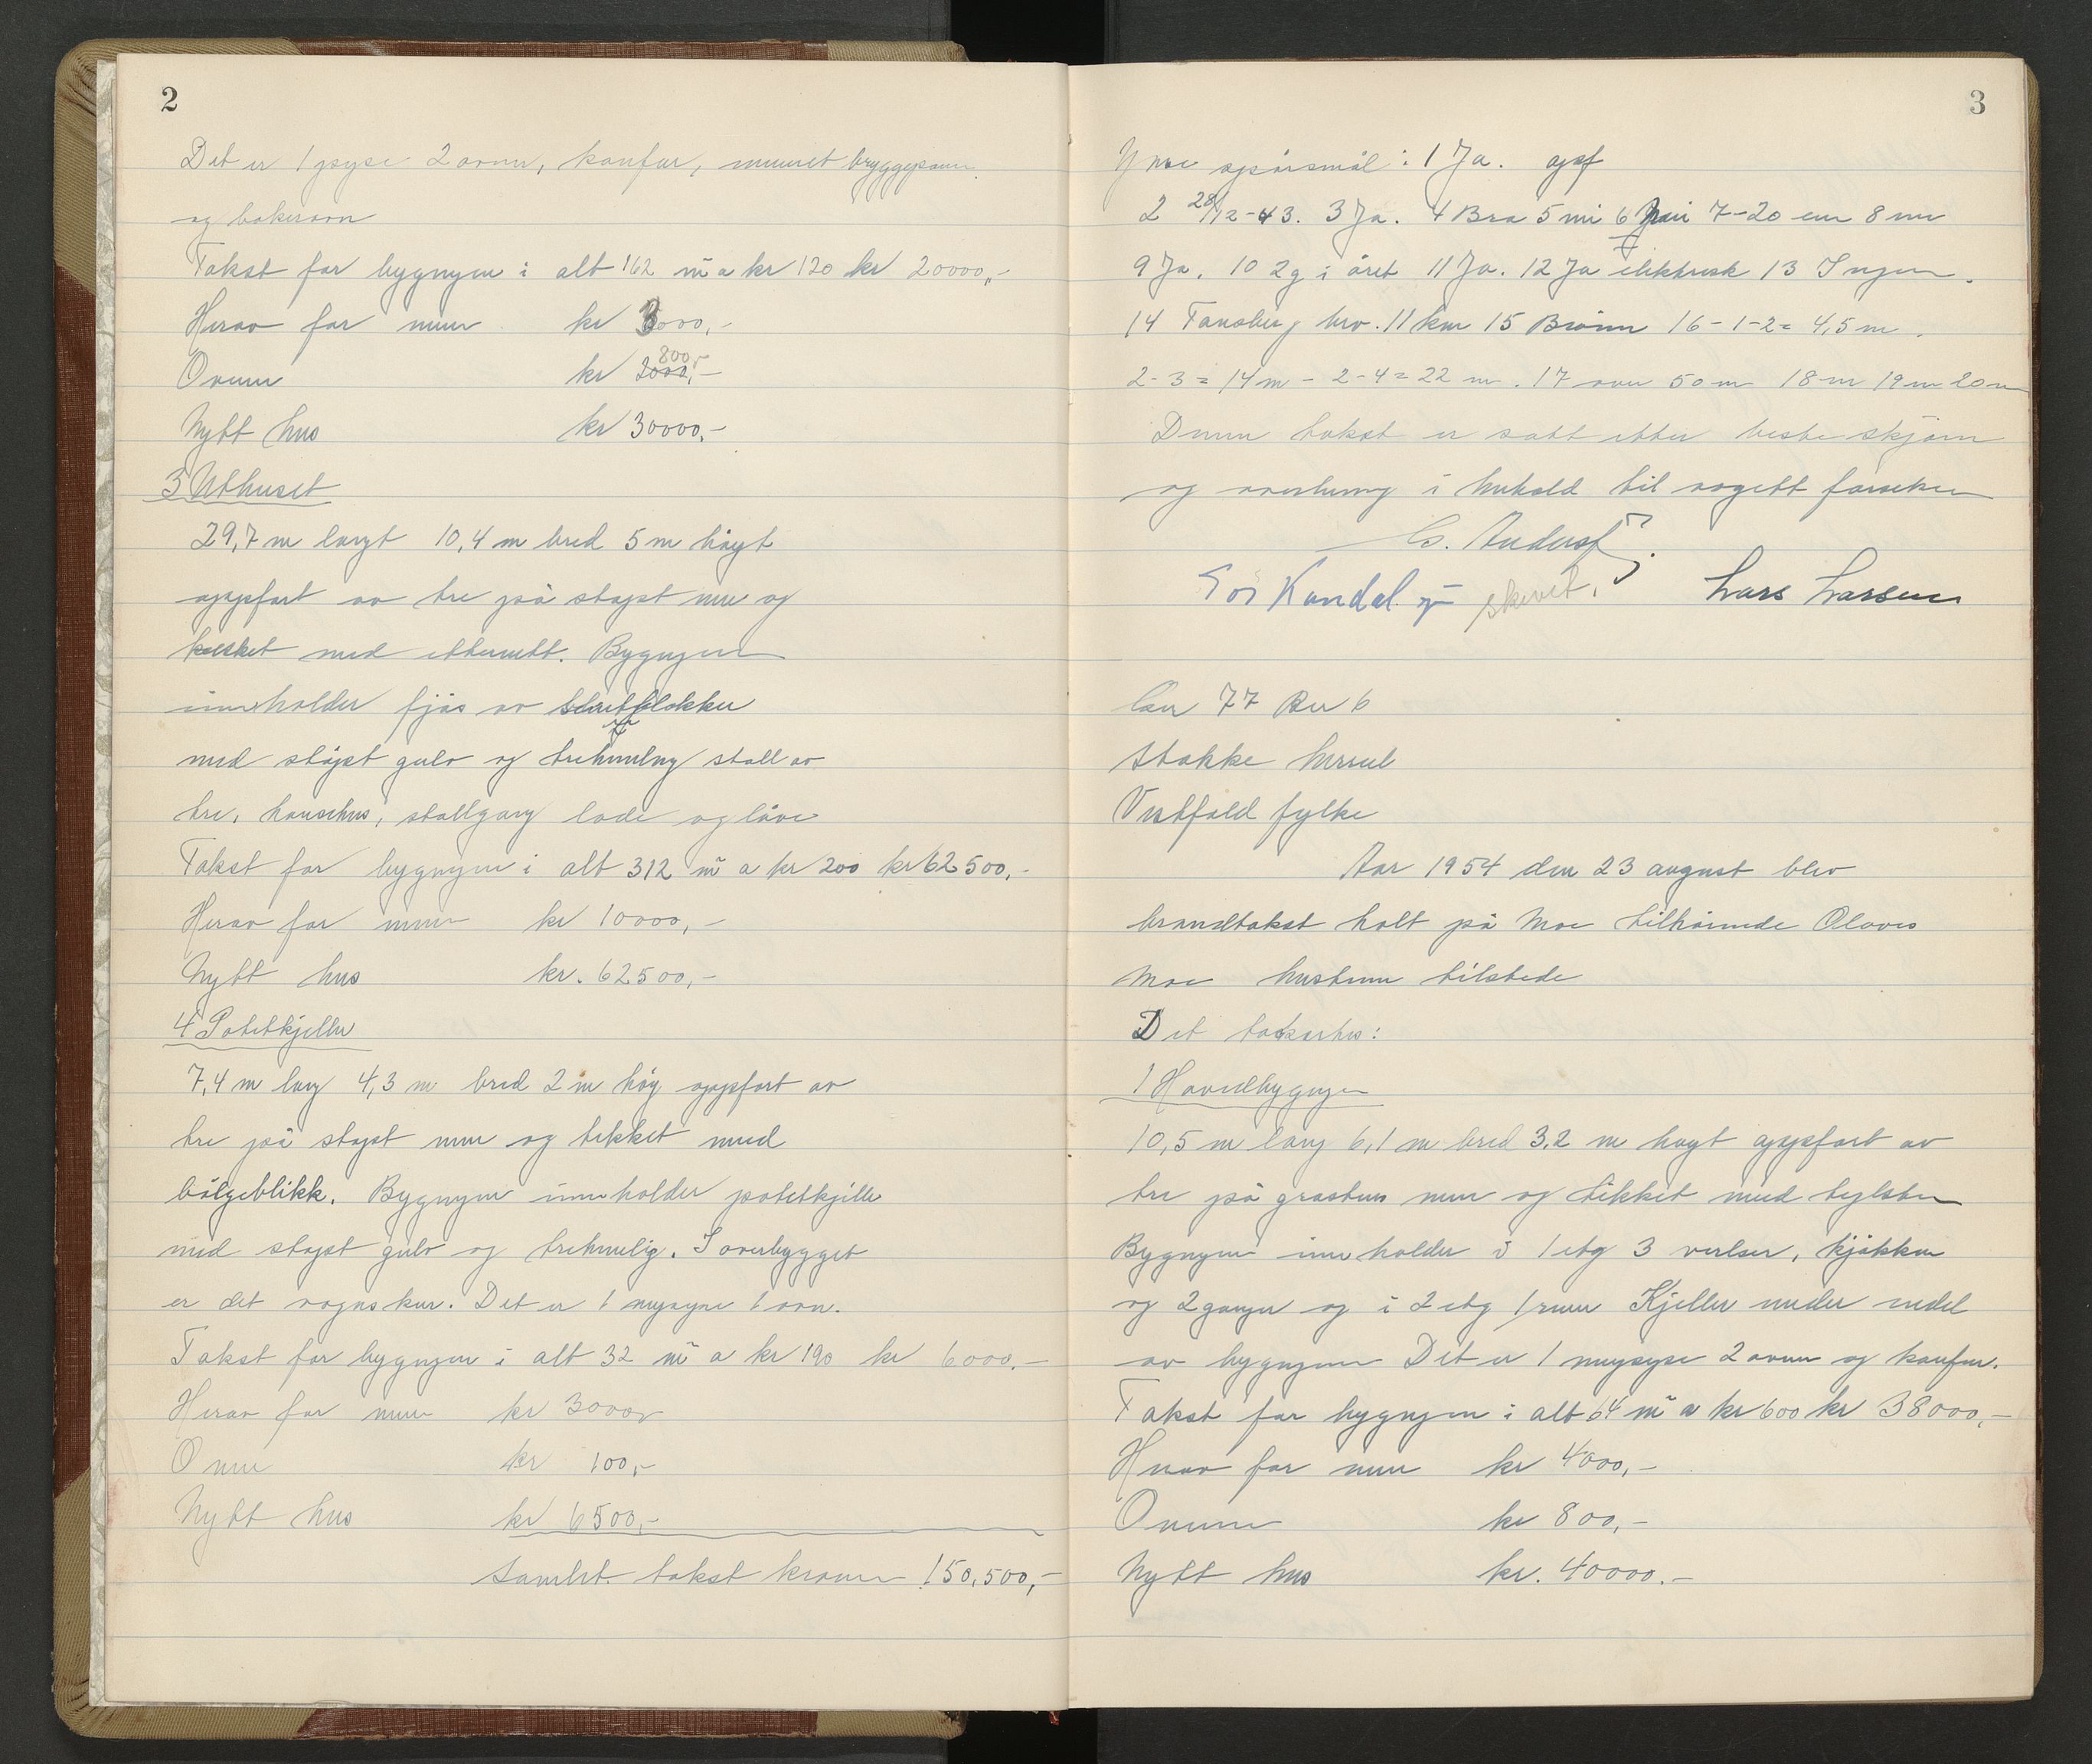 2
Det er 1 pipe 2 ovner, komfur, muuret bryggepanne
og bakerovn
Takst for bygngen i alt 162 m² a kr 120 kr 20000,-
Herav for muur kr 3000,-
Ovner kr 2000,- 800,-
Nytt hus kr 30000,-
3 Uthuset
29,7 m langt 10,4 m bred 5 m høyt
oppført av tre på støpt mur og
med eternitt. Bygngen
inneholder fjøs av
med støpt gulv og trehimling stall av
tre, hønsehus, stallgang lade og låve
Takst for bygngen i alt 312 m² a kr 200 kr 62500,-
Herav for muur kr 10000,-
Nytt hus kr. 62500,-
4 Potetkjeller
7,4 m lang 4,3 m bred 2 m høg oppført av
tre på støpt mur og tekket med
bølgeblikk. Bygngen inneholder potetkjeller
med støpt gulv og trehimlig. I overbygget
er det vognskur. Det er 1 1 ovn.
Takst for bygngen i alt 32 m² a kr 190 kr 6000,-
Herav for muur kr 3000,-
Ovner kr 100,-
Nytt hus kr 6500,-
Samlet takst kroner 150,500,-
3
spørsmål: 1 Ja.
2 28/12-43. 3 Ja. 4 Bra 5 6 7-20 cm 8
9 Ja. 10 2 g i året 11 Ja. 12 Ja elektrisk 13 Ingen.
14 Tønsberg brv. 11 km 15 Brønn 16 - 1-2 = 4,5 m.
2-3 = 14 m - 2-4 = 22 m. 17 over 50 m 18 19 20
Denne takst er satt etter beste skjønn
og overbevisning i henhold til
Anders
Kandal skrevet. Lars Larsen
77 Bnr 6
Stokke herred
Vestfold fylke
Aar 1954 den 23 august blev
brandtakst holt på Moe tilhørende Olaves
Moe hustruen tilstede
Det taksertes:
1 Hovedbygngen
10,5 m lang 6,1 m bred 3,2 m høyt oppført av
tre på gråstens mur og tekket med teglsten
Bygngen inneholder i 1 etg 3 verlser, kjøkken
og 2 ganger og i 2 etg 1 rum Kjeller under endel
av bygngen Det er 1 2 ovner og komfur.
Takst for bygngen i alt 64 m² a kr 600 kr 38000,-
Herav for muur kr 4000,-
Ovner kr 800,-
Nytt hus kr. 40000.-